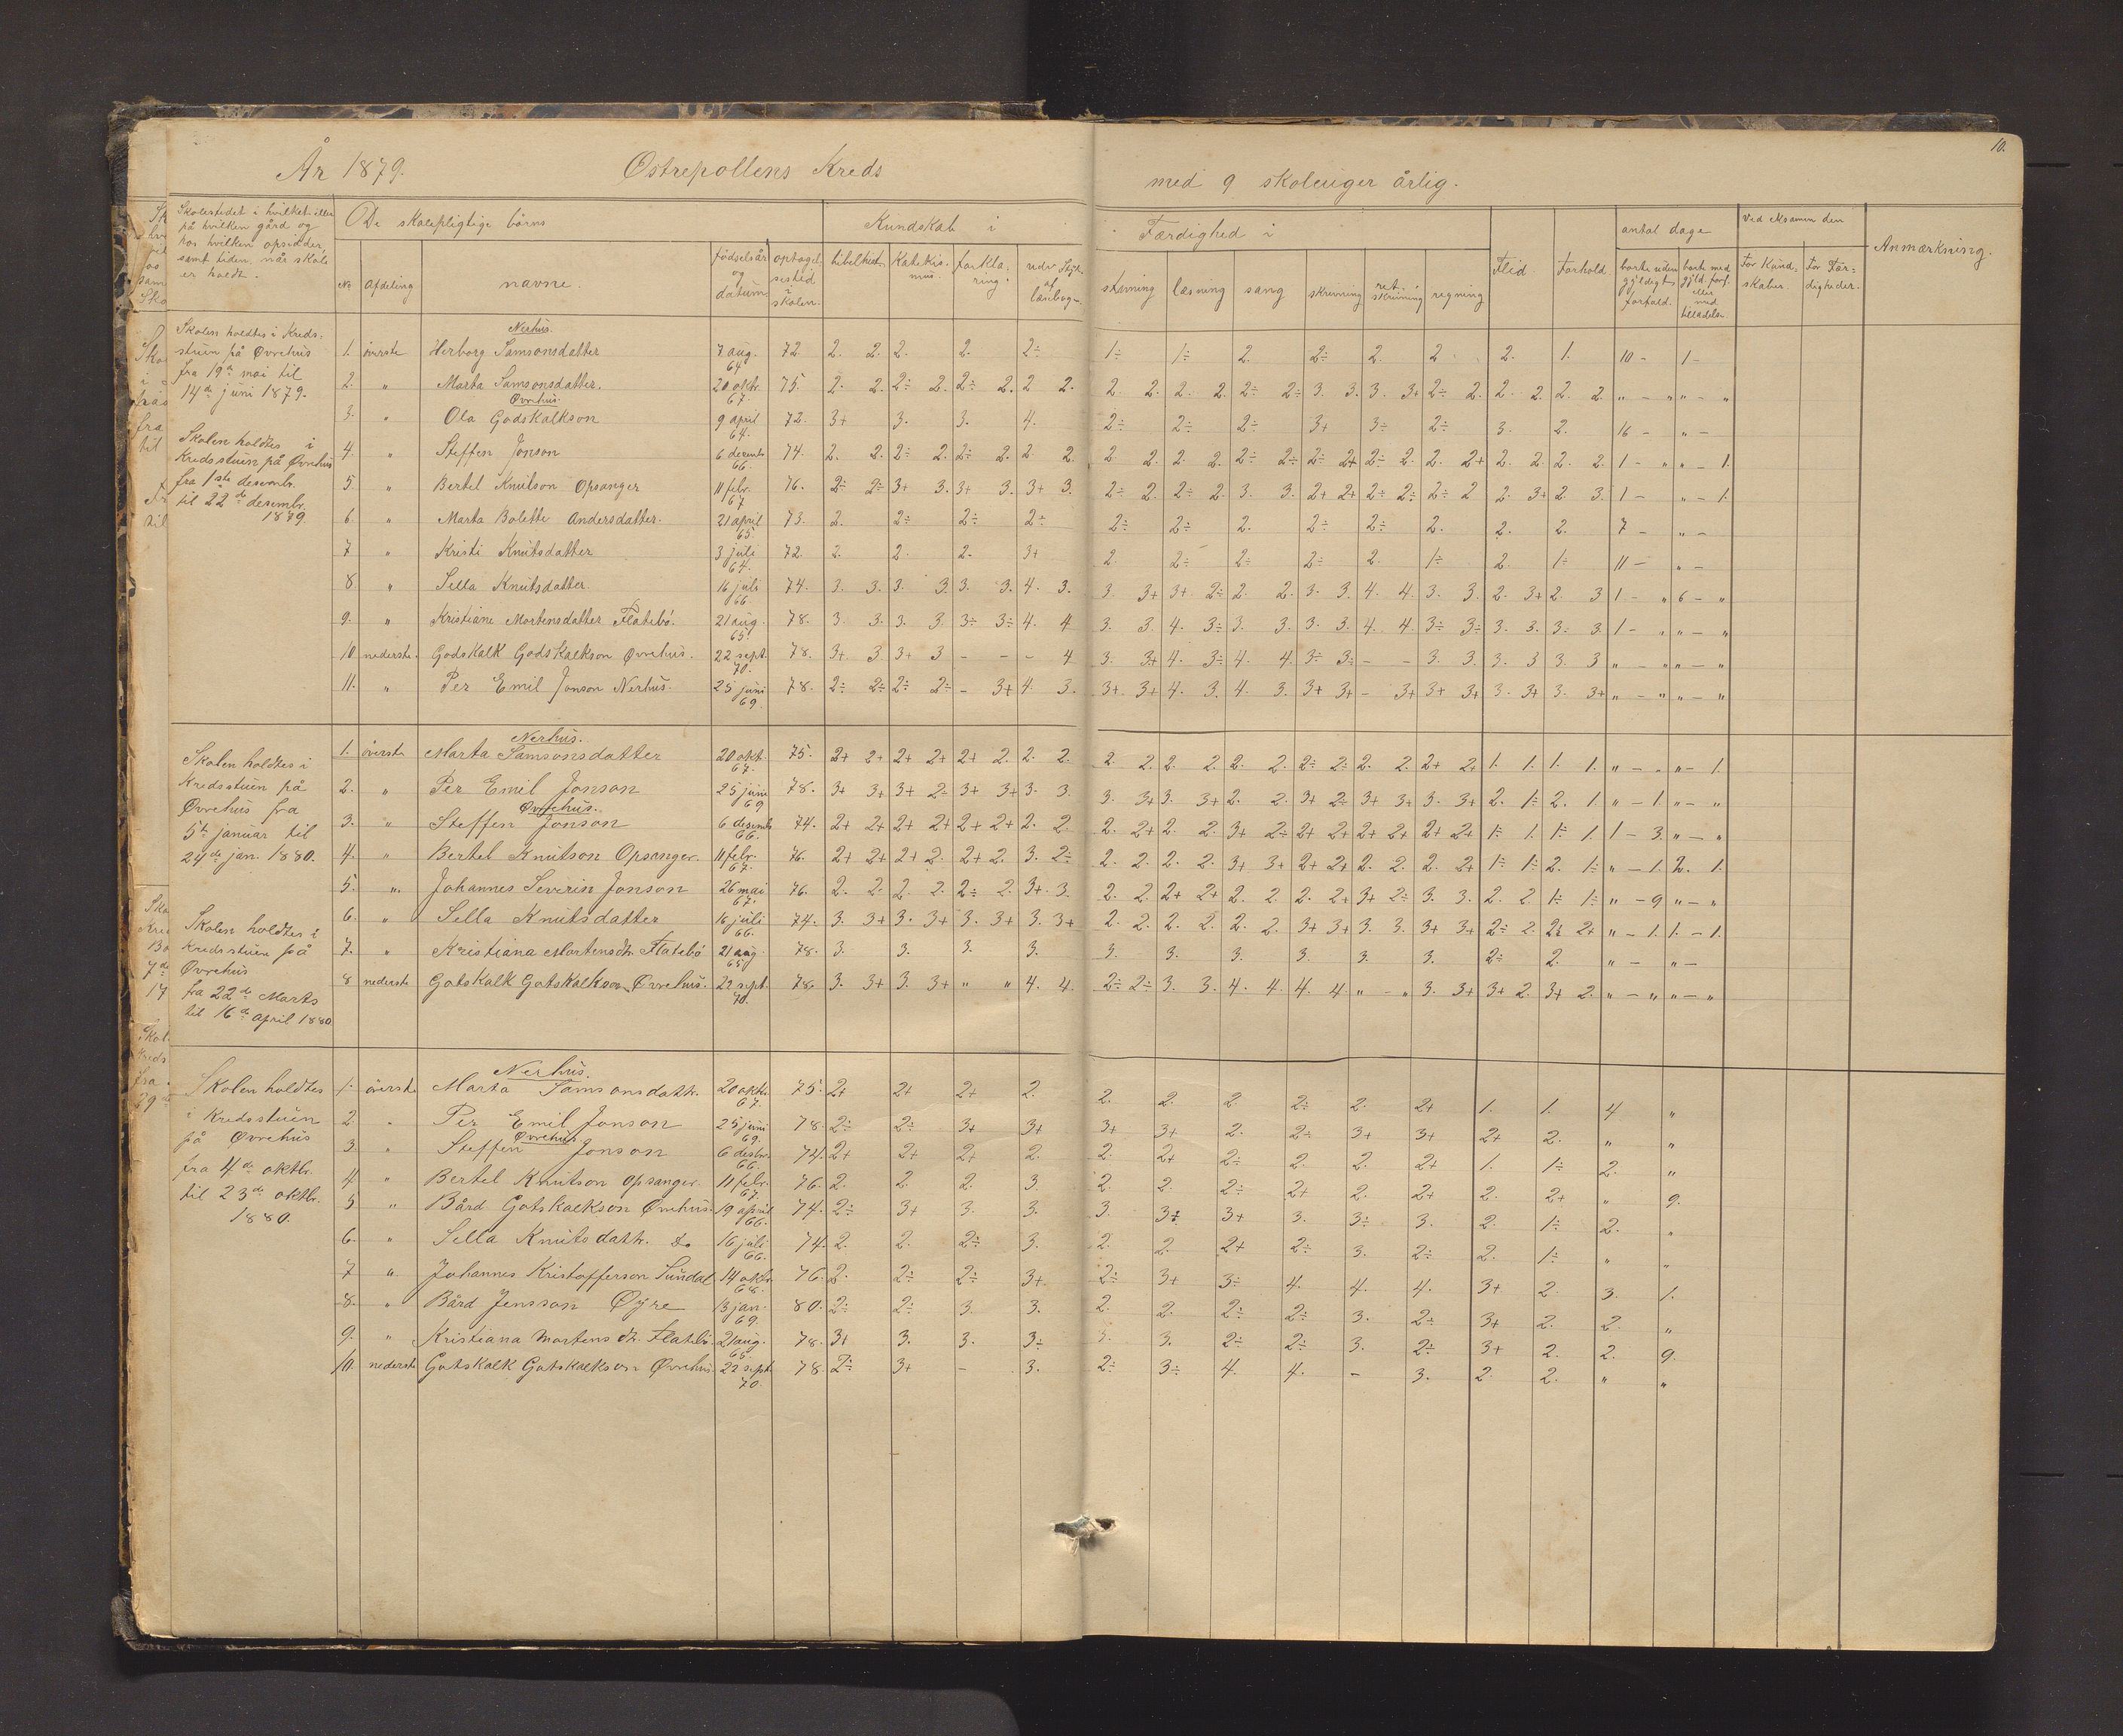 År 1879. Østrepollens Kreds med 9 skoleuger årlig. 10.
Skolestedet i hvilket eller
på hvilken gård og
hos hvilken opsidder,
samt tiden, når skole
er holdt.
De skolepligtige børns
Kundskab i
Færdighed i
Flid. Forhold.
antal dage
Ved eksamen den
Anmærkning.
No afdeling navne.
fødselsår
og
datum
optagel-
sestid
i
skolen.
bibelhist. Katekis-
mus. forkla-
ring. udv. Styk.
af
læsebog.
skrivning læsning sang skrivning ret-
skrivning regning
borte uden
gyldigt
forfald.
borte med
gyld. forf.
eller
med
tilladelse
For Kund-
skaber.
For Fær-
digheder.
Skolen holdtes i Kreds-
stuen på Øvrehus
fra 19de mai til
14de juni 1879.
Skolen holdtes i
Kredsstuen på Øvrehus
fra 1ste desembr.
til 22de desembr.
1879.
Nerhus.
1. överste Herborg Samsonsdatter 7 aug. 64 72. 2. 2. 2. 2. 2÷ 1÷ 1÷ 2. 2÷ 2. 2 2. 1. 10 – 1 –
2. " Marta Samsonsdatter. 20 oktr. 67 75. 2. 2. 2÷ 2. 2÷ 2. 2 2. 2. 2. 2. 2. 2÷ 2÷ 3. 3. 3. 3+ 2÷ 2. 2. 2. 2. 2. " – " " – "
Øvrehus.
3. " Ola Godskalkson 9 april 64. 72. 3+ 3. 3. 4. 2÷ 2÷ 2÷ 3+ 3÷ 2÷ 3. 2. 16 – " –
4. " Steffen Jonson 6 decemb. 66. 74. 2. 2. 2÷ 2. 2÷ 2. 2 2. 2. 2. 2. 2. 2÷ 2÷ 2÷ 2+ 2÷ 2. 2. 2+ 2. 2. 2. 2. 1 – " " – 1.
5. " Bertel Knutson Opsanger 11 febr. 67 76. 2÷ 2÷ 3+ 3. 3+ 3. 3+ 3. 2÷ 2. 2÷ 2. 3. 3. 2+ 2+ 2÷ 2÷ 2÷ 2 2. 3+ 2. 3. 1 – " – 1.
6. " Marta Bolette Andersdatter. 21 april 65. 73. 2. 2÷ 2÷ 2÷ 2÷ 2÷ 2. 2÷ 2÷ 2. 2. 2. 7 – " –
7 " Kristi Knutsdatter 3 juli 64. 72. 2. 2. 2. 3+ 2. 2÷ 2÷ 2÷ 2. 1÷ 2. 1÷ 11 – " –
8 " Sella Knutsdatter. 16 juli 66. 74. 3. 3. 3. 3. 3. 3. 4. 3. 3. 3+ 3+ 2÷ 2. 2. 3. 3. 4. 4. 3. 3. 2. 3+ 2. 3 1 – " 6 – "
9. " Kristiane Mortensdatter Flatebö. 21 aug. 65. 78. 3. 3. 3. 3. 3÷ 3÷ 4. 4 3. 3. 4. 3÷ 3. 3. 3. 3. 4. 4. 3÷ 3÷ 3. 3. 3. 3. 1 – " " – "
10 nederste. Godskalk Godskalkson Øvrehus. 22 sept. 70. 78. 3+ 3 3+ 3 – – – 4 3. 3+ 4. 3÷ 4. 4. 3÷ 3÷ – – 3. 3. 3. 3 3. 3 " – " " – "
11. " Per Emil Jonson Nerhus. 25 juni 69. 78. 2÷ 2÷ 2÷ 2÷ – 3+ 4. 3. 3+ 3+ 4. 3. 4. 3. 3+ 3+ – 3+ 3+ 3+ 3. 3+ 3. 3+ " – " " – "
Skolen holdtes i
Kredsstuen på
Øvrehus fra
5te januar til
24de jan. 1880.
Skolen holdtes i
Kredsstuen på
Øvrehus
fra 22de Marts
til 16de april 1880.
Nerhus.
1. överste Marta Samsonsdatter 20 okt. 67. 75. 2+ 2+ 2+ 2+ 2+ 2. 2. 2. 2. 2. 2. 2. 2. 2. 2÷ 2÷ 2. 2. 2+ 2+ 1. 1. 1. 1. " – " " – 1.
2. " Per Emil Jonson 25 juni 69 78. 3+ 3+ 3+ 2÷ 3+ 3+ 3. 3. 3. 3+ 3. 3+ 2. 2. 3+ 2÷ 3+ 3+ 3. 3+ 2. 1÷ 2. 1. " – 1. " – "
Øvrehus.
3. " Steffen Jonson 6 desemb. 66. 74. 2+ 2+ 2+ 2+ 2+ 2+ 2. 2. 2. 2+ 2. 2. 3+ 2÷ 2+ 2+ 2+ 2+ 2+ 2+ 1÷ 1. 1÷ 1. 1 – 3. " – "
4. " Bertel Knutson Opsanger. 11 febr. 67. 76. 2+ 2+ 2+ 2. 2+ 2. 3. 2÷ 2. 2. 2. 2. 3+ 3+ 2+ 2+ 2. 2. 2. 2+ 1÷ 1÷ 2. 1÷ " – 1. 2. 1.
5. " Johannes Severin Jonson 26 mai 67. 76. 2. 2. 2. 2. 2÷ 2. 3+ 3. 2. 2. 2+ 2+ 2. 2. 2. 2+ 3+ 2÷ 3. 3. 2. 2. 1÷ 1÷ " – 9 " – "
6. " Sella Knutsdatter 16 juli 66. 74. 3. 3+ 3. 3+ 3. 3+ 3. 3+ 2. 2. 2. 2. 2. 2. 3+ 3+ 3. 3. 3+ 3+ 2÷ 2. 2÷ 2+ " – 1. 1. – 1.
7. " Kristiana Mortensdtr. Flatebö 21 aug. 65. 78. 3. 3. 3. 3. 3. 3. 3. 3. 3. 3. 2÷ 2. " – " –
8 nederste Gotskalk Gotskalkson Øvrehus. 22 sept. 70. 78. 3. 3+ 3. 3+ " " 4. 4. 2÷ 2÷ 3. 3. 4. 4. 4. 4 " – " 3. 3+ 3+ 2. 3+ 2. " – " " – "
Skolen holdtes
i Kredsstuen
på Øvrehus
fra 4de oktbr.
til 23de oktbr.
1880.
Nerhus.
1. överste Marta Samsonsdattr. 20 oktr. 67. 75. 2+ 2+ 2+ 2. 2. 2. 2. 2÷ 2. 2+ 1. 1. 4 "
2. " Per Emil Jonson 25 juni 69. 78. 2÷ 2÷ 3+ 3+ 3+ 3+ 2. 2÷ 3+ 3+ 2+ 2. " "
Øvrehus.
3. " Steffen Jonson 6 desbr. 66. 74. 2+ 2+ 2+ 2. 2. 2+ 2÷ 2. 2. 2+ 1. 1÷ 2. "
4 " Bertel Knutson Opsanger. 11 febr. 67. 76. 2. 2. 2. 3. 2. 2. 2÷ 2+ 2. 2+ 2. 2+ " 9.
5 " Bård Gotskalkson Øvrehus. 19 april 66. 74. 2÷ 3+ 3. 3. 3. 3÷ 3+ 3. 3÷ 3. 2. 1÷ 2. "
6. " Sella Knutsdattr. Do 16 juli 66. 74. 2. 2. 2÷ 3. 2. 2. 2+ 2÷ 3. 2÷ 2. 1÷ " "
7 " Johannes Kristofferson Sundal 14 oktr. 68. 76. 2. 2÷ 2÷ 3+ 2÷ 3+ 3÷ 4. 4. 4. 3+ 2. 3. 1.
8. " Bård Jensson Øyre 13 jan. 69. 80. 2÷ 2÷ 3. 3. 2. 2. 2÷ 2÷ 3. 2÷ 3+ 2. 2. "
9. " Kristiana Mortensdtr. Flatebö 21 aug. 65. 78. 3+ 3. 3. 3÷ 3. 3. 2÷ 2÷ 3. 2÷ 3+ 2. 2. 9.
10. nederste Gotskalk Gotskalkson Øvrehus 22 sept. 70. 78. 2÷ 3+ – 3. 2÷ 3÷ 4. 4. – 3. 2. 2. " "